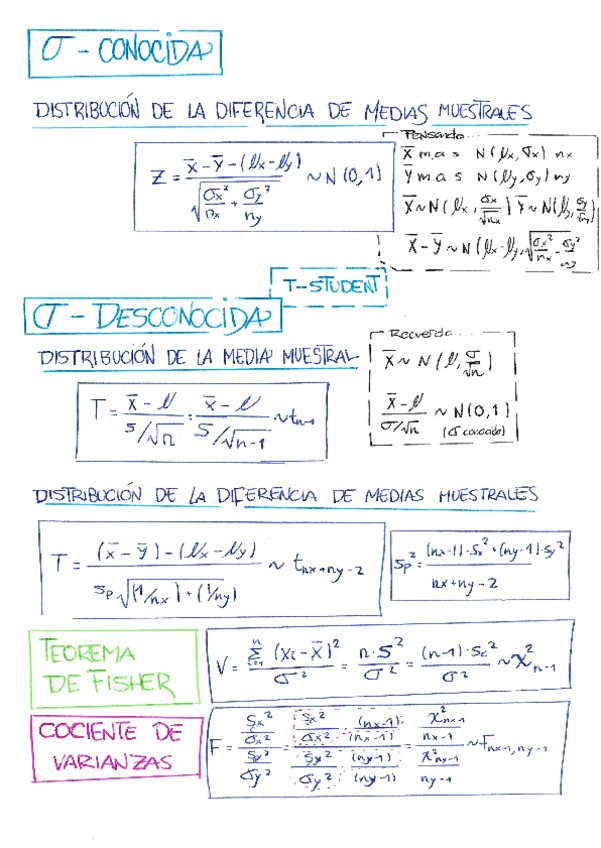 σ - CONOCIDA
DISTRIBUCIÓN DE LA DIFERENCIA DE MEDIAS MUESTRALES
Z = (x̄ - ȳ - (μx - μy)) / √(σx²/nx + σy²/ny) ~ N(0,1)
Pensando...
X m.a.s N(μx, σx) nx
Y m.a.s N(μy, σy) ny
X̄ ~ N(μx, σx/√nx) Ȳ ~ N(μy, σy/√ny)
X̄ - Ȳ ~ N(μx - μy, √(σx²/nx - σy²/ny)
T-STUDENT
σ - DESCONOCIDA
DISTRIBUCIÓN DE LA MEDIA MUESTRAL
T = (x̄ - μ)/(s/√n) = (x̄ - μ)/(S/√n-1) ~ tn-1
Recuerda...
X̄ ~ N(μ, σ/√n)
(X̄ - μ)/(σ/√n) ~ N(0,1)
(σ conocida)
DISTRIBUCIÓN DE LA DIFERENCIA DE MEDIAS MUESTRALES
T = ((x̄ - ȳ) - (μx - μy)) / (sp √((1/nx) + (1/ny))) ~ tnx+ny-2
sp² = ((nx-1)·Sx² + (ny-1)·Sy²) / (nx+ny-2)
TEOREMA
DE FISHER
V = Σ(xi - x̄)²/σ² = n·S²/σ² = (n-1)·Sc²/σ² ~ χ²n-1
COCIENTE DE
VARIANZAS
F = (Sx²/σx²)/(Sy²/σy²) = (Sx²/σx² · (nx-1)/(nx-1))/(Sy²/σy² · (ny-1)/(ny-1)) = (χ²nx-1/nx-1)/(χ²ny-1/ny-1) ~ Fnx-1, ny-1